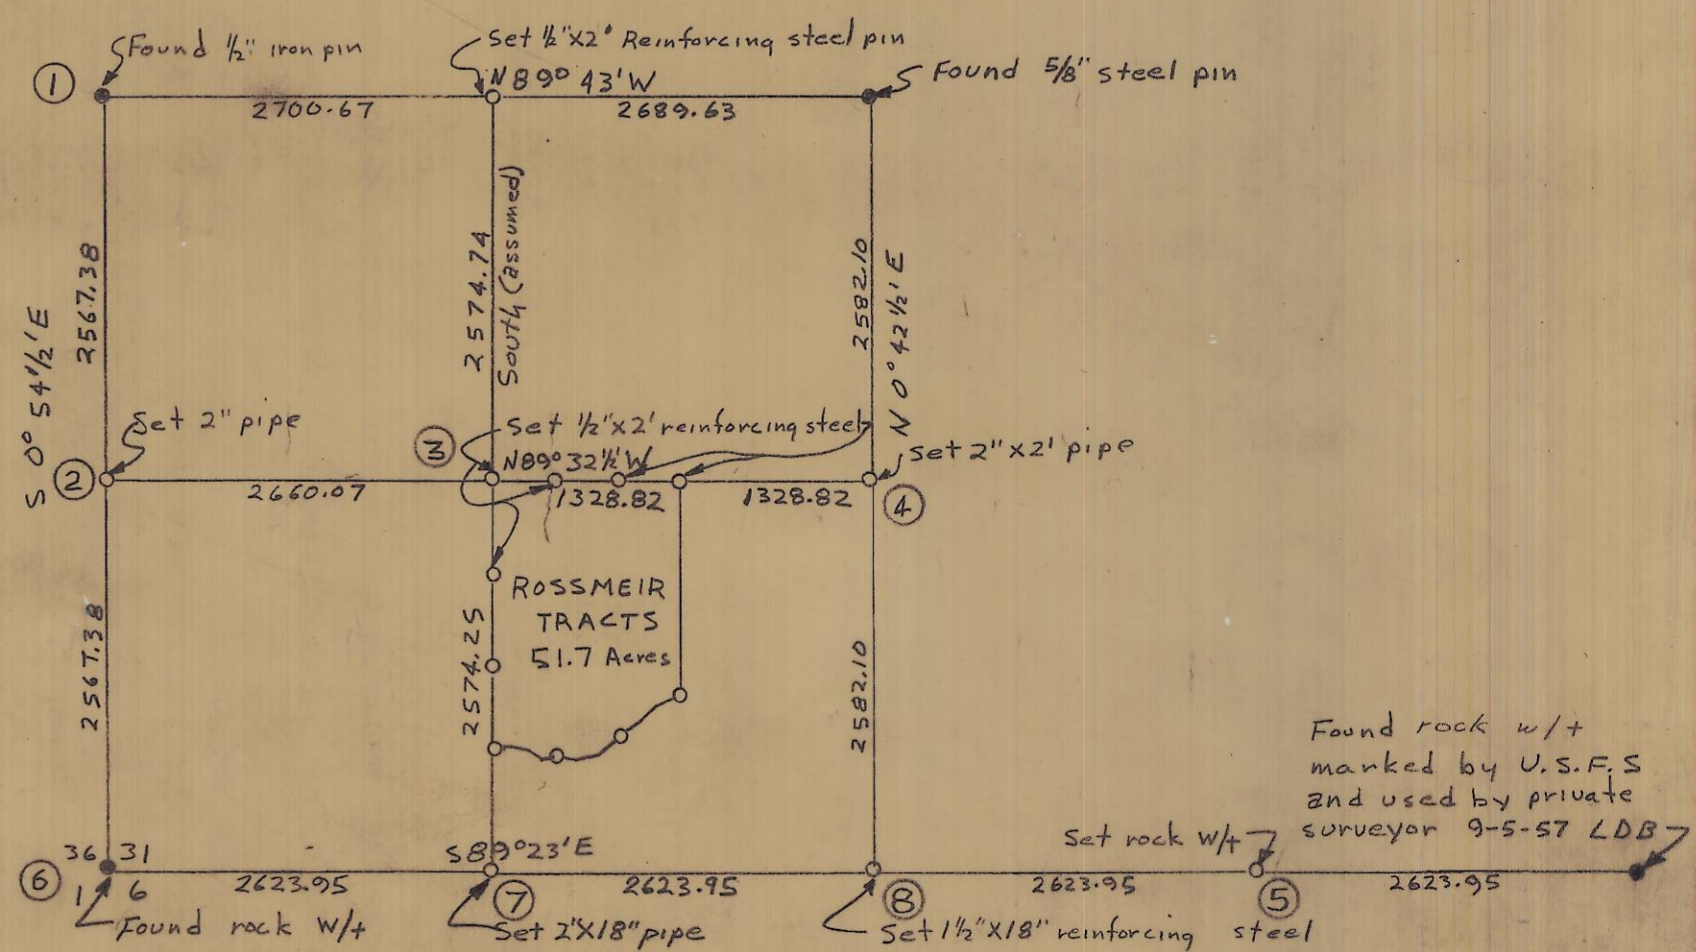 Found 1/2" iron pin
Set 1/2"X2' Reinforcing steel pin
1
N 89° 43' W
Found 5/8" steel pin
2700.67
2689.63
2567.38
2574.74
South (assumed)
2582.10
N 0° 42 1/2' E
S 0° 54 1/2' E
Set 2" pipe
3
Set 1/2"X2' reinforcing steel
N89° 32 1/2' W
Set 2"X2' pipe
2
2660.07
1328.82
1328.82
4
ROSSMEIR
TRACTS
51.7 Acres
2567.38
2574.25
2582.10
Found rock w/+
marked by U.S.F.S
and used by private
surveyor 9-5-57 LDB
Set rock W/+
36 31
S89°23'E
6
1 6
2623.95
2623.95
2623.95
2623.95
7
8
5
Found rock W/+
Set 2"X18" pipe
Set 1 1/2"X18" reinforcing steel